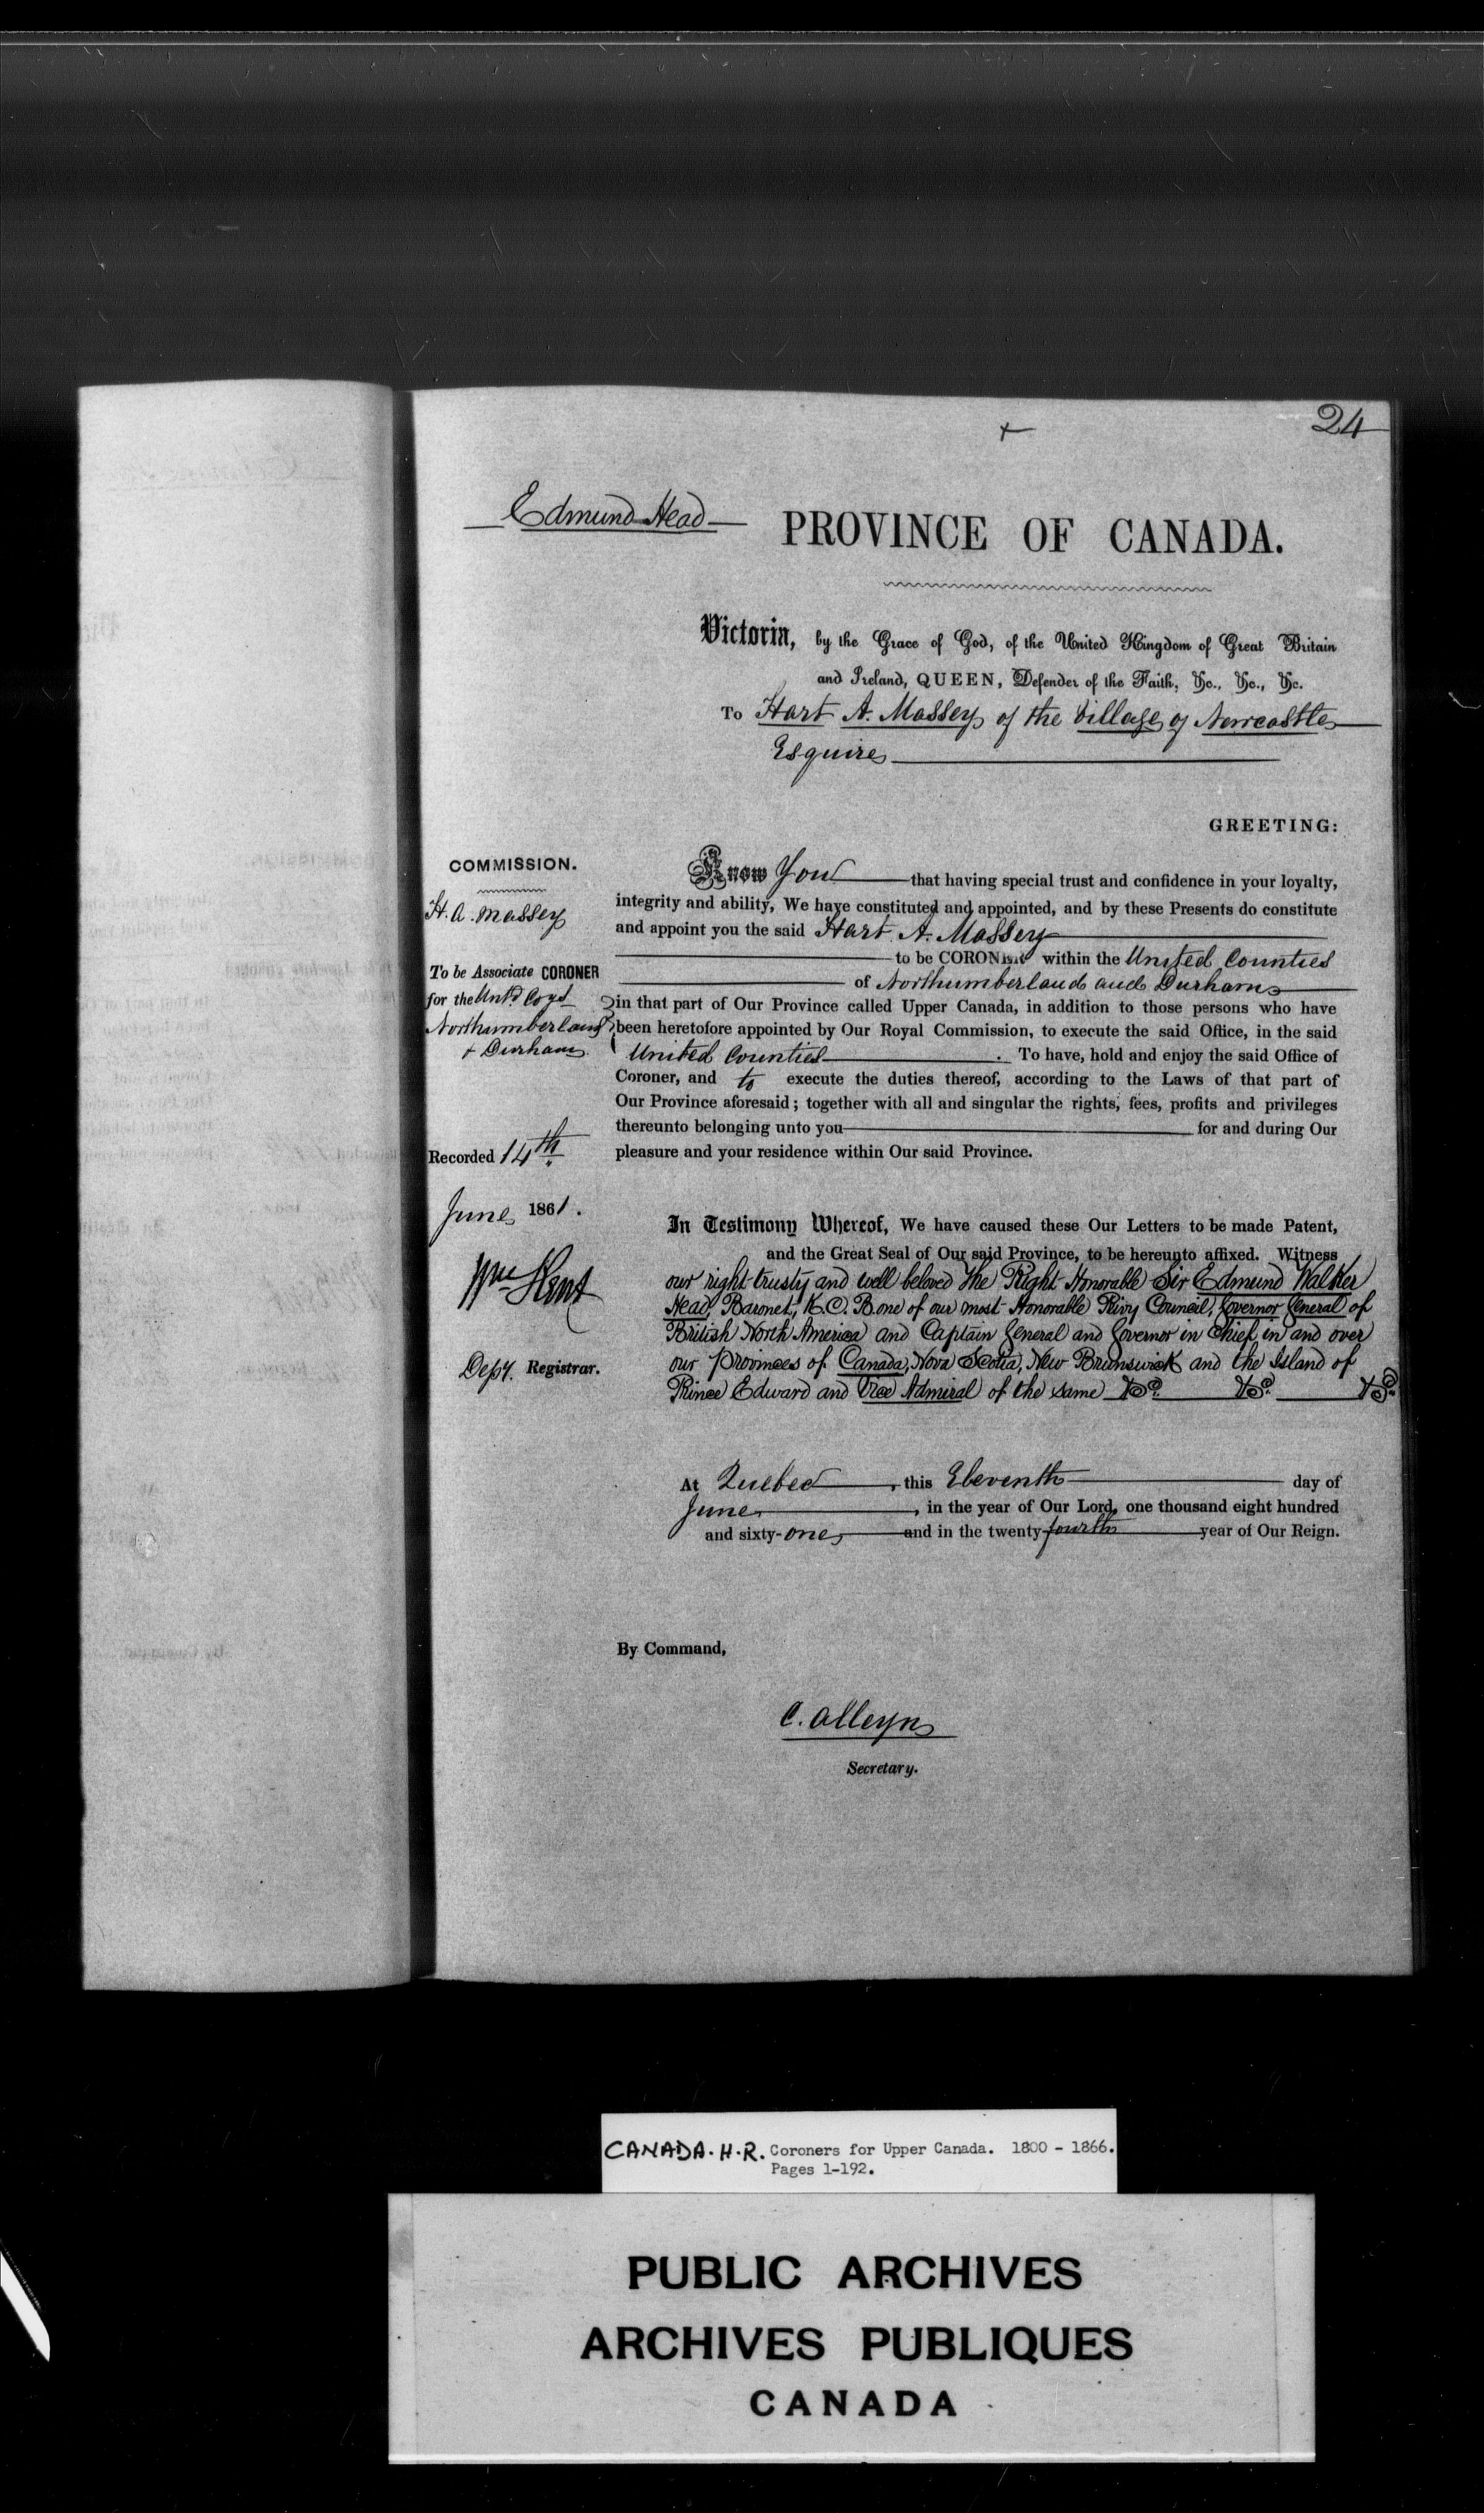 24
Edmund Head
PROVINCE OF CANADA.
Victoria, by the Grace of God, of the United Kingdom of Great Britain
and Ireland, QUEEN, Defender of the Faith, &c., &c., &c.
To Hart A. Massey of the Village of Newcastle
Esquire
GREETING:
COMMISSION.
H. A. Massey
To be Associate CORONER
for the Unt'd Coys
Northumberland
+ Durham
Recorded 14th
June 1861.
Wm Kent
Depy. Registrar.
Know You that having special trust and confidence in your loyalty,
integrity and ability, We have constituted and appointed, and by these Presents do constitute
and appoint you the said Hart A. Massey
to be CORONER within the United Counties
of Northumberland and Durham
in that part of Our Province called Upper Canada, in addition to those persons who have
been heretofore appointed by Our Royal Commission, to execute the said Office, in the said
United Counties. To have, hold and enjoy the said Office of
Coroner, and to execute the duties thereof, according to the Laws of that part of
Our Province aforesaid; together with all and singular the rights, fees, profits and privileges
thereunto belonging unto you for and during Our
pleasure and your residence within Our said Province.
In Testimony Whereof, We have caused these Our Letters to be made Patent,
and the Great Seal of Our said Province, to be hereunto affixed. Witness
our right trusty and well beloved The Right Honorable Sir Edmund Walker
Head, Baronet, K.C.B. one of our most Honorable Privy Council, Governor General of
British North America and Captain General and Governor in Chief in and over
our Provinces of Canada, Nova Scotia, New Brunswick and the Island of
Prince Edward and Vice Admiral of the same &c. &c. &c.
At Quebec, this Eleventh day of
June, in the year of Our Lord, one thousand eight hundred
and sixty-one, and in the twenty-fourth year of Our Reign.
By Command,
C. Alleyn
Secretary.
CANADA. H.R. Coroners for Upper Canada. 1800 - 1866.
Pages 1-192.
PUBLIC ARCHIVES
ARCHIVES PUBLIQUES
CANADA